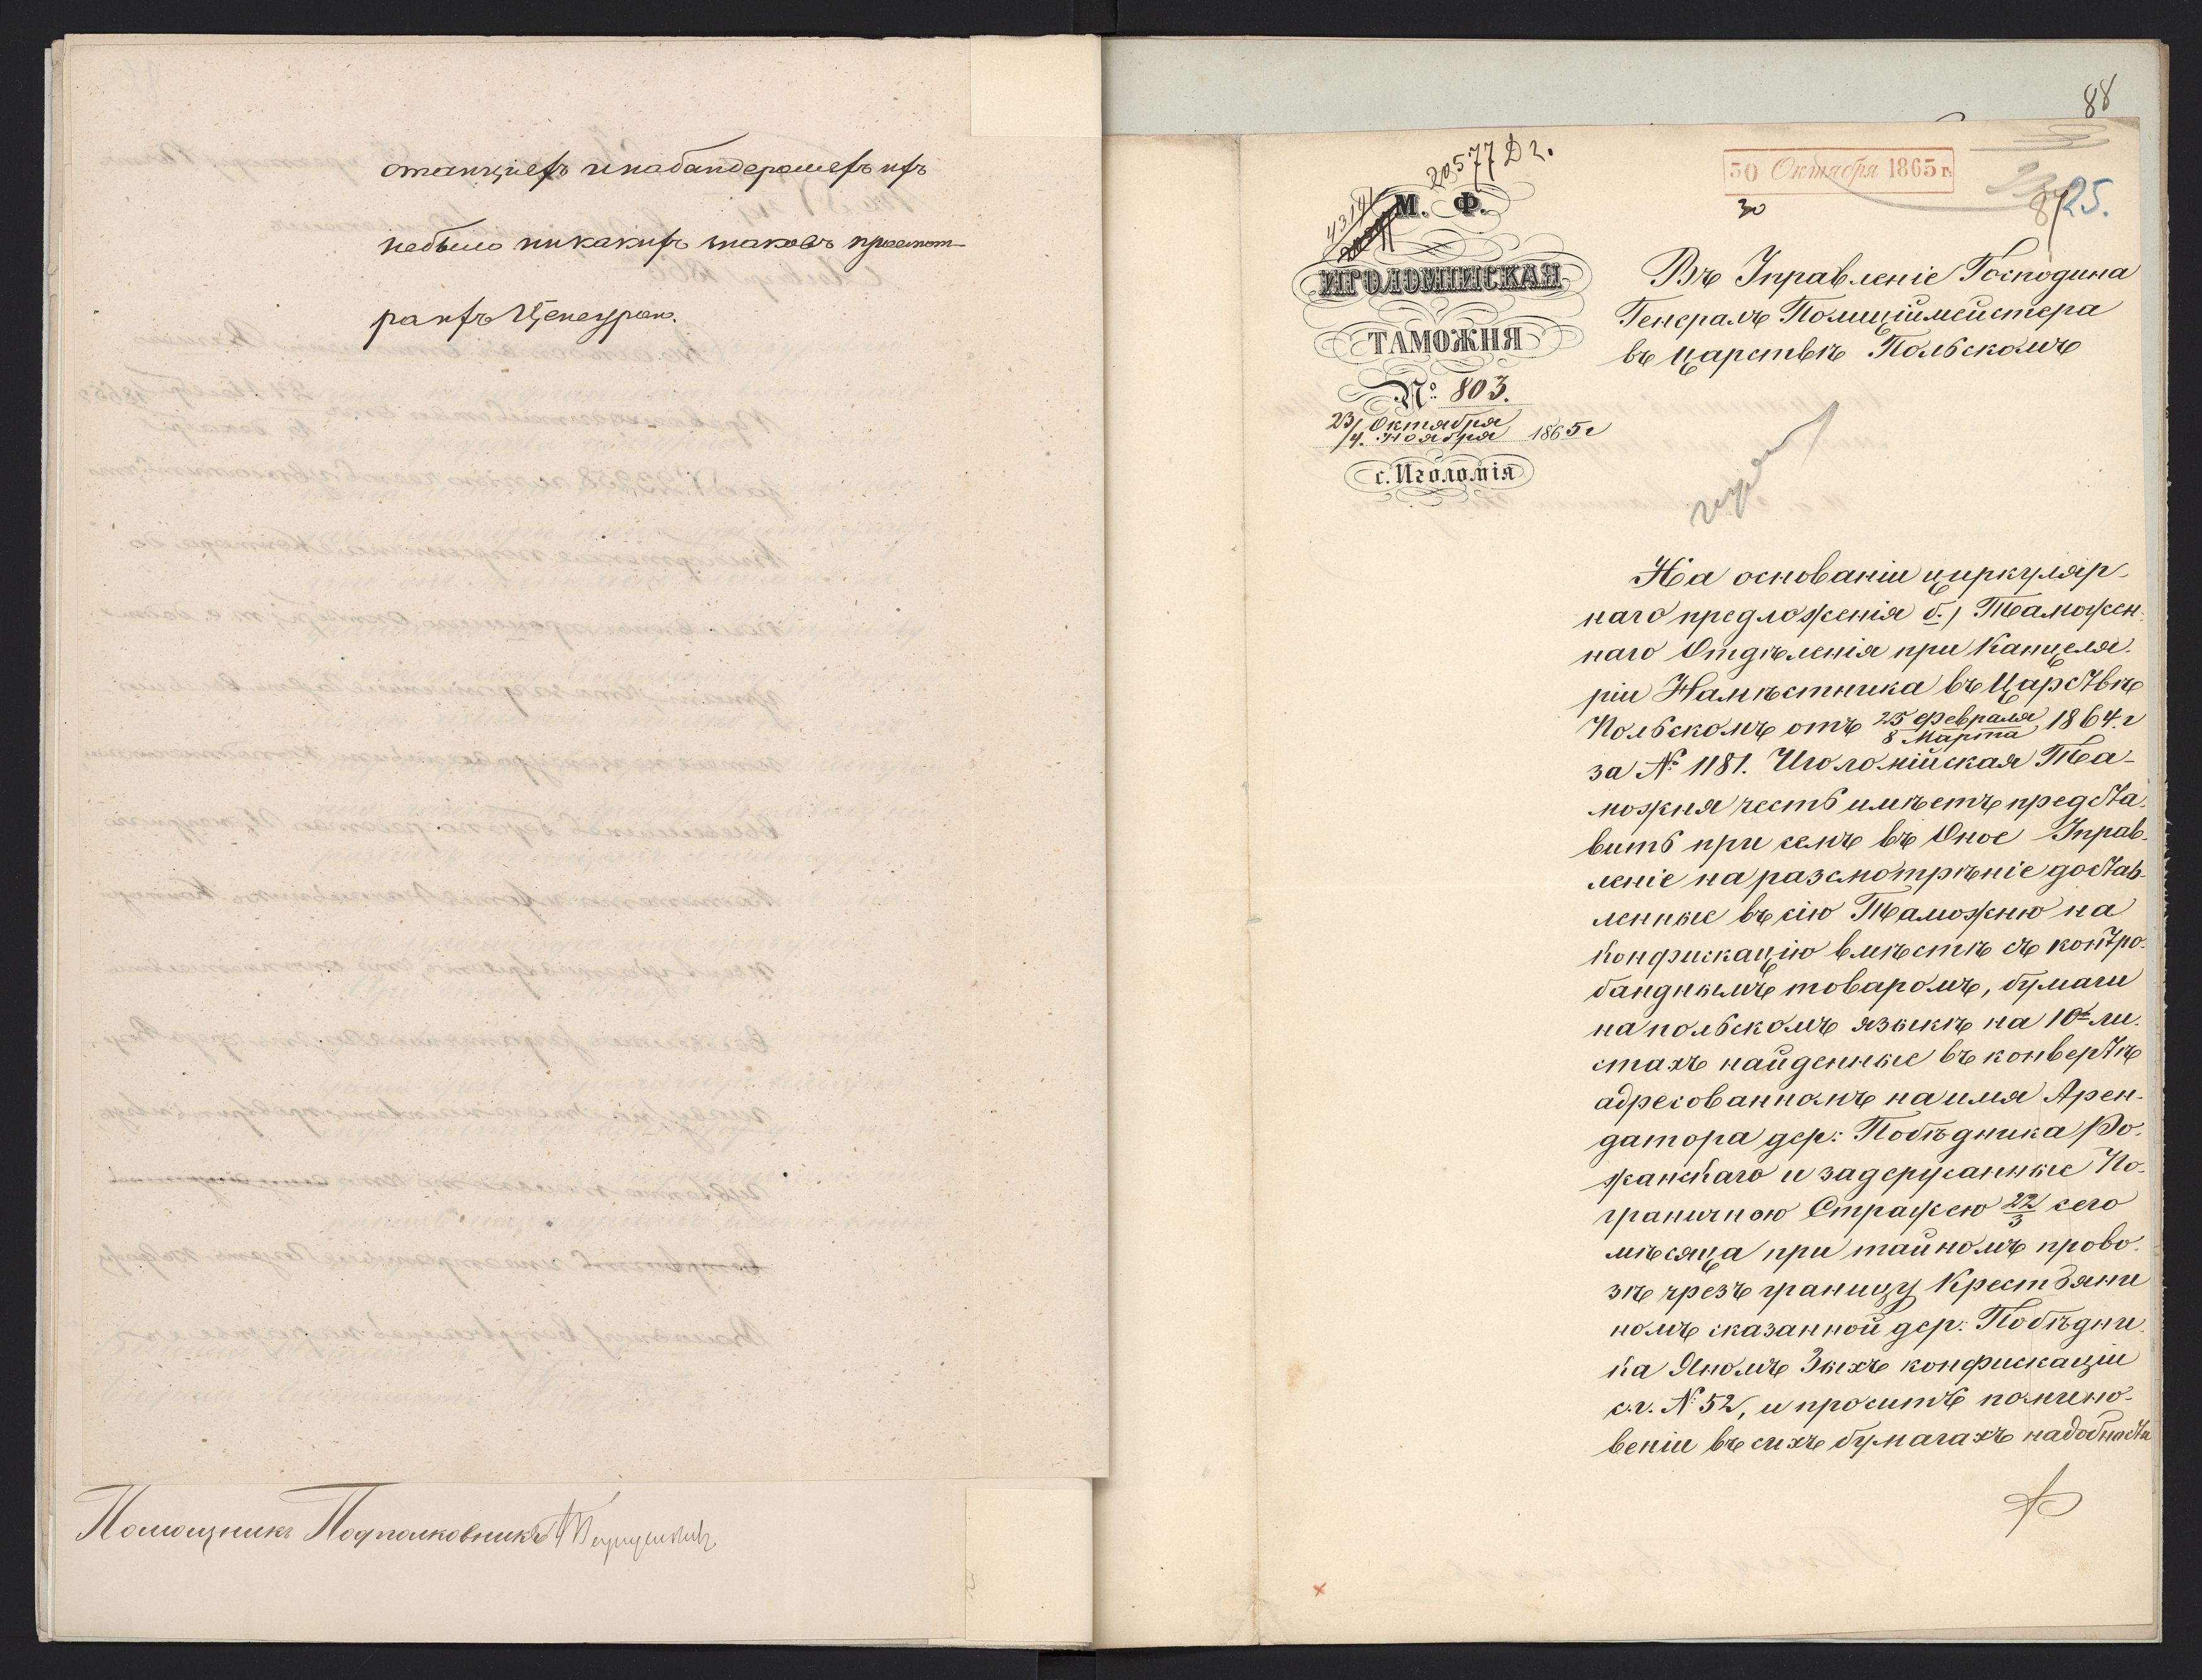 станціехъ и на бандеролехъ ихъ
небыло никакихъ знаковъ просмот-
ранъ Цензурою.
Помощникъ Подполковникъ
88
20,577 Д 2.
4314
30 Октября 1865 г.
30
87
25.
М. Ф.
ИГОЛОМІЙСКАЯ
ТАМОЖНЯ
№ 803.
23/4 Октября/Ноября 1865 г
с. Иголомія
Въ Управленіе Господина
Генералъ Полиціймейстера
въ Царствѣ Польскомъ
На основаніи циркуляр-
наго предложенія б.) Таможен-
наго Отдѣленія при Канцеля-
ріи Намѣстника въ Царствѣ
Польскомъ отъ 25 февраля/8 Марта 1864. г
за № 1181. Иголомійская Та-
можня честь имѣетъ предста-
вить при семъ въ Оное Управ-
леніе на разсмотрѣніе достав-
ленные въ сію Таможню на
конфискацію вмѣстѣ съ контро-
банднымъ товаромъ, бумаги
на польскомъ языкѣ на 10 ли-
стахъ найденные въ конвертѣ
адресованномъ на имя Арен-
датора дер: Побѣдника Ро-
жанскаго и задержанные По-
граничною Стражею 22/3 сего
мѣсяца при тайномъ прово-
зѣ чрезъ границу Крестьяни
номъ сказанной дер: Побѣдни-
ка Яномъ Зыхъ конфискаціи
с.г. № 52, и проситъ помино-
веніи въ сихъ бумагахъ надобности